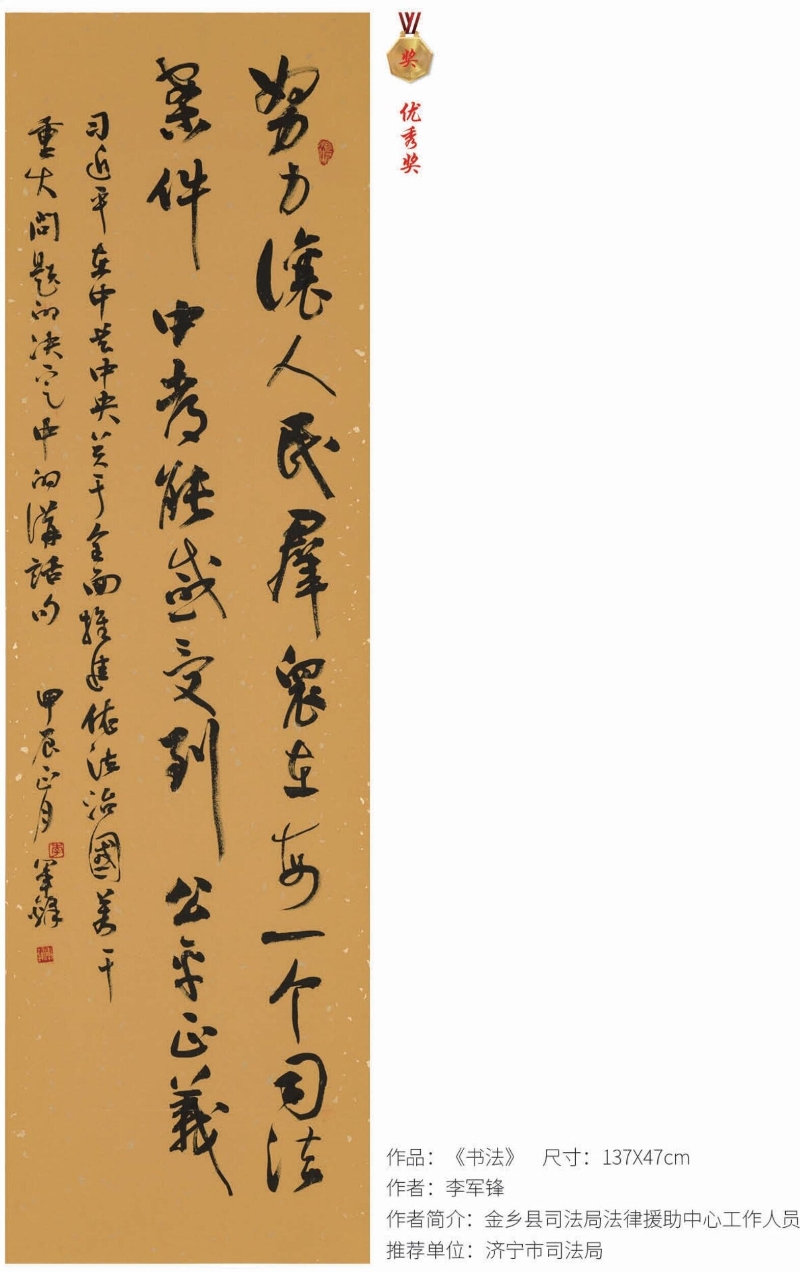 努力讓人民羣眾在每一个司法
案件中都能感受到公平正義
习近平在中共中央关于全面推進依法治國若干
重大问题的决定中的講話句 甲辰正月 軍鋒
奖
优秀奖
作品：《书法》 尺寸：137X47cm
作者：李军锋
作者简介：金乡县司法局法律援助中心工作人员
推荐单位：济宁市司法局